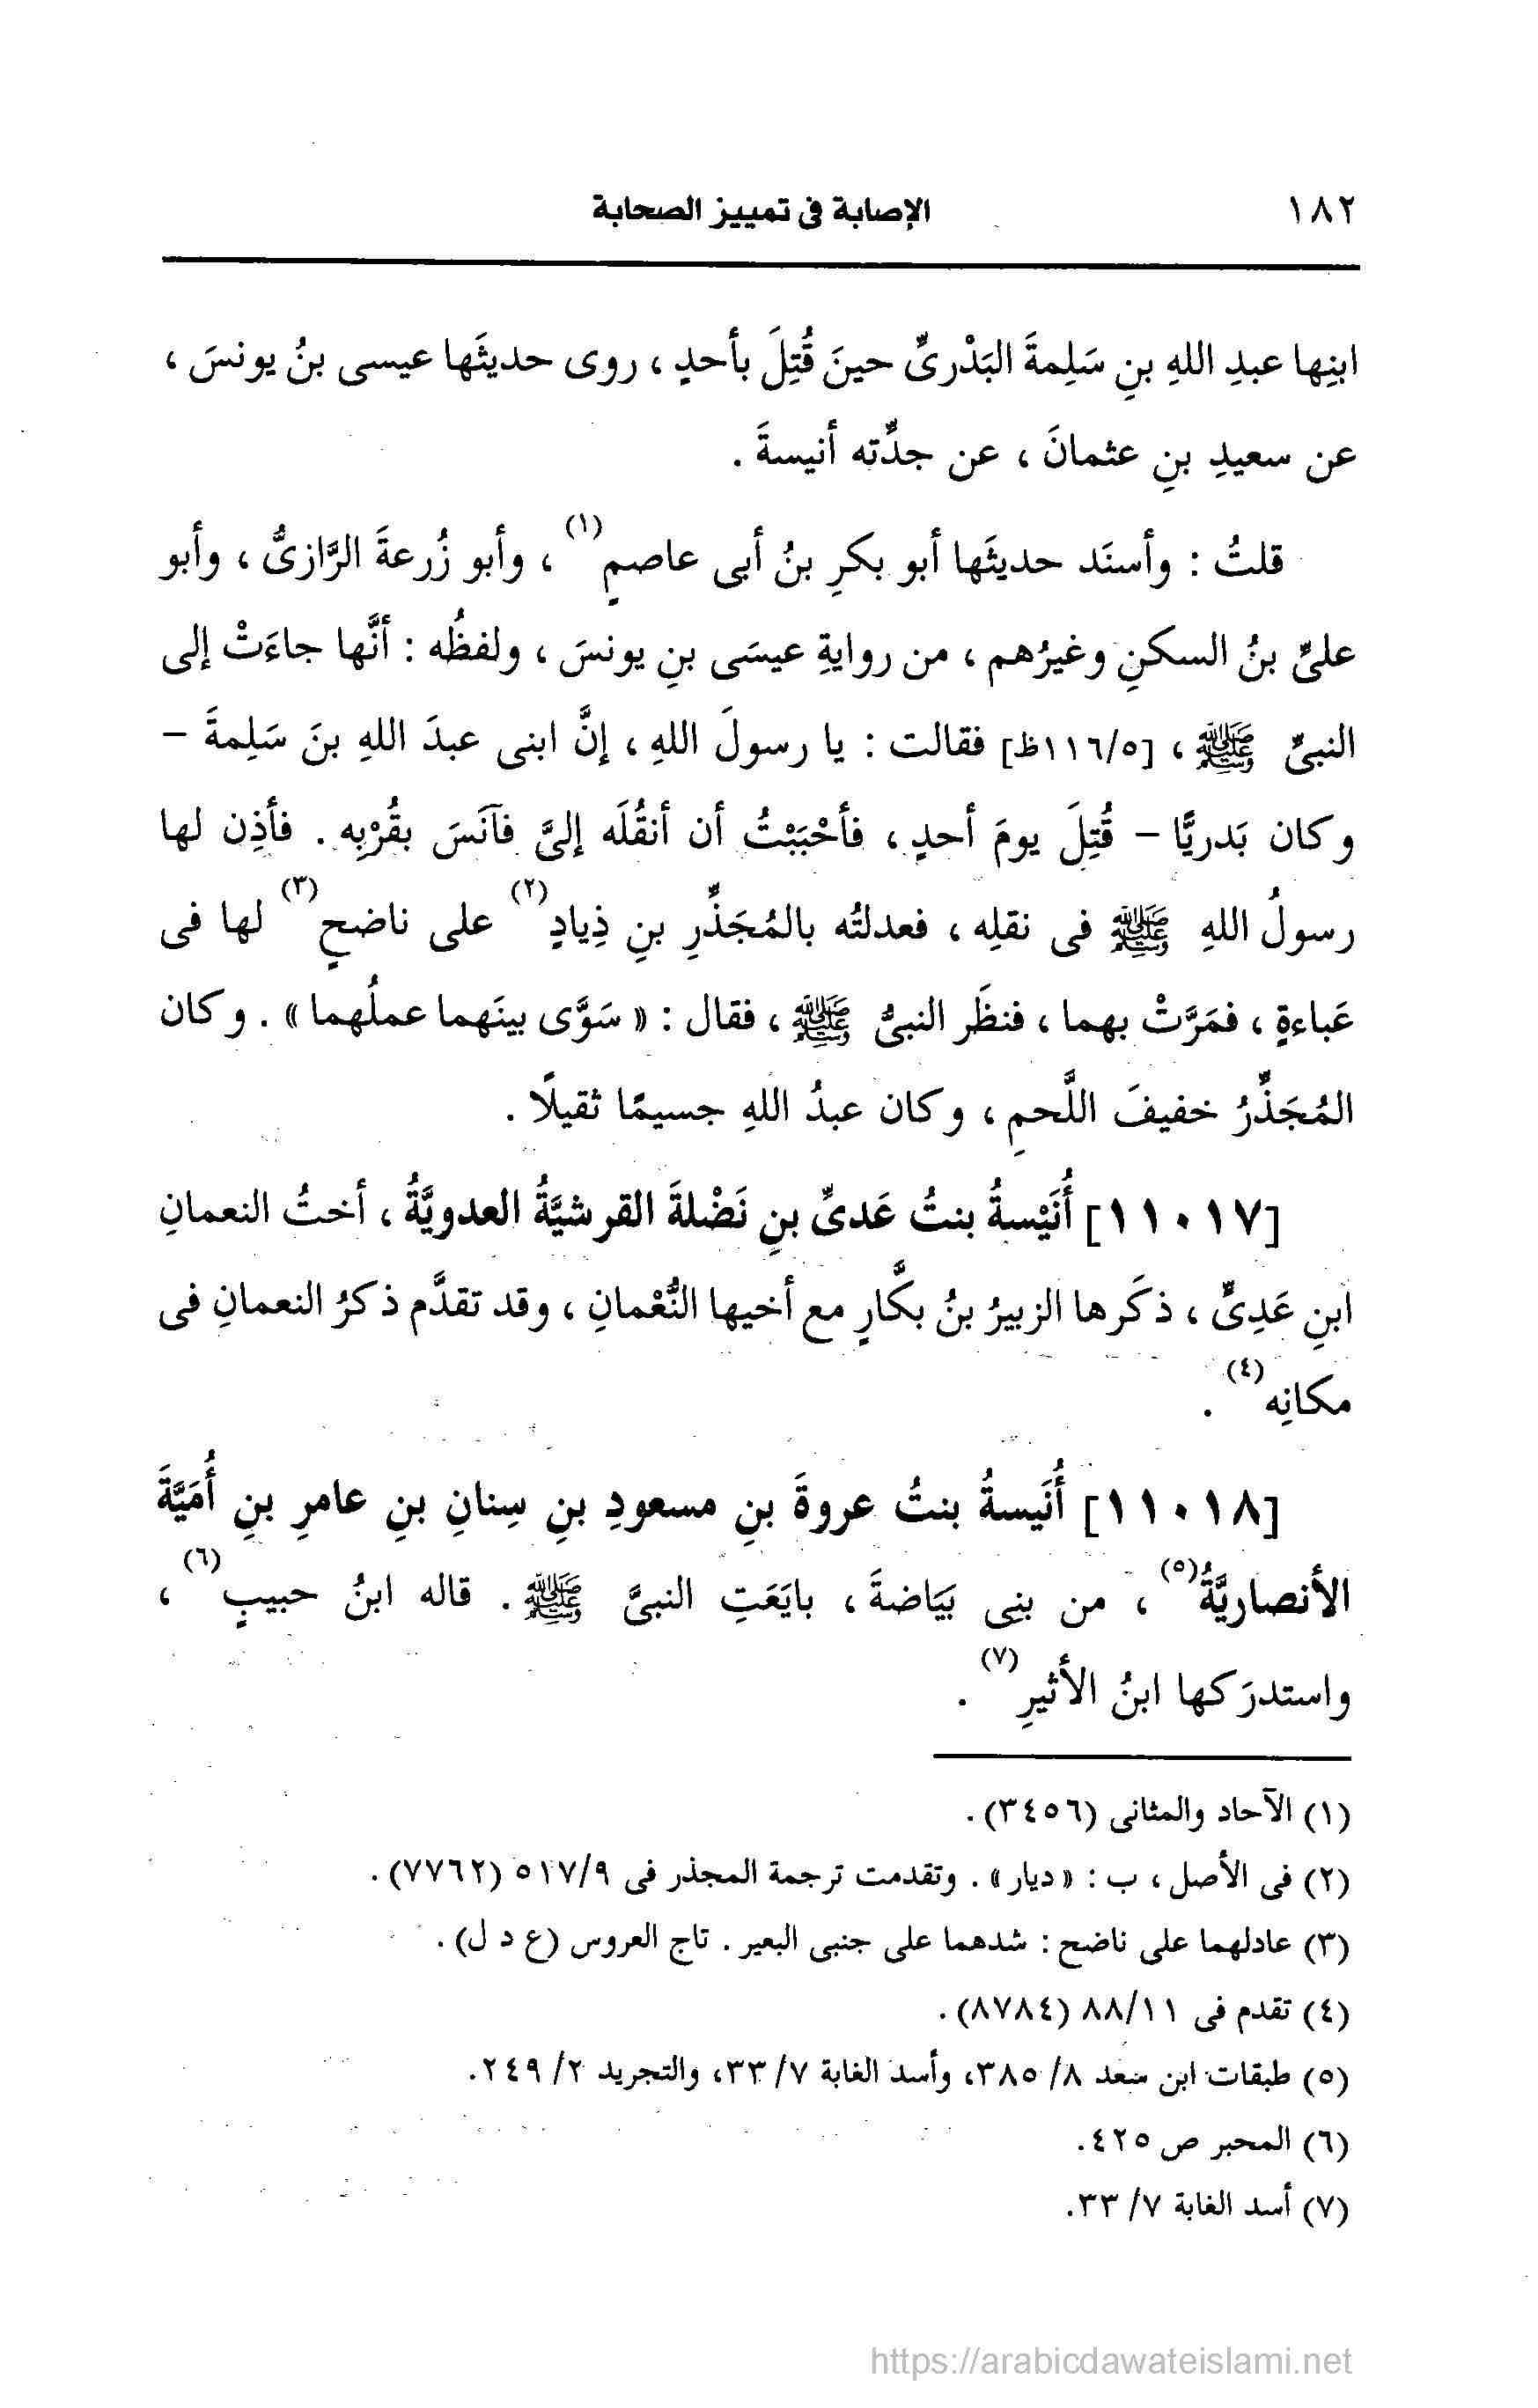 ١٨٢ الإصابة فى تمييز الصحابة
ابنِها عبدِ اللهِ بنِ سَلِمةَ البَدْرىِّ حينَ قُتِلَ بأحدٍ ، روى حديثَها عيسى بنُ يونسَ ،
عن سعيدِ بنِ عثمانَ ، عن جدَّتِه أنيسةَ .
قلتُ : وأسنَد حديثَها أبو بكرِ بنُ أبى عاصمٍ(١) ، وأبو زُرعةَ الرَّازىُّ ، وأبو
علىِّ بنُ السكنِ وغيرُهم ، من روايةِ عيسَى بنِ يونسَ ، ولفظُه : أنَّها جاءَتْ إلى
النبىِّ ﷺ ، [١١٦/٥ظ] فقالت : يا رسولَ اللهِ ، إنَّ ابنى عبدَ اللهِ بنَ سَلِمةَ -
وكان بَدريًّا - قُتِلَ يومَ أحدٍ ، فأحْبَبْتُ أن أنقُلَه إلىَّ فآنَسَ بقُرْبِه . فأذِن لها
رسولُ اللهِ ﷺ فى نقلِه ، فعدلتْه بالمُجَذَّرِ بنِ ذِيادٍ(٢) على ناضحٍ(٣) لها فى
عَباءةٍ ، فمَرَّتْ بهما ، فنظَر النبىُّ ﷺ ، فقال : « سَوَّى بينَهما عملُهما » . وكان
المُجَذَّرُ خفيفَ اللَّحمِ ، وكان عبدُ اللهِ جسيمًا ثقيلًا .
[١١٠١٧] أُنَيْسةُ بنتُ عَدىِّ بنِ نَضْلةَ القرشيَّةُ العدويَّةُ ، أختُ النعمانِ
ابنِ عَدِىٍّ ، ذكَرها الزبيرُ بنُ بكَّارٍ مع أخيها النُّعْمانِ ، وقد تقدَّم ذكرُ النعمانِ فى
مكانِه(٤) .
[١١٠١٨] أُنَيسةُ بنتُ عروةَ بنِ مسعودِ بنِ سِنانِ بنِ عامرِ بنِ أُمَيَّةَ
الأنصاريَّةُ(٥) ، من بنِى بيَاضةَ ، بايَعَتِ النبىَّ ﷺ . قاله ابنُ حبيبٍ(٦) ،
واستدرَكها ابنُ الأثيرِ(٧) .
(١) الآحاد والمثانى (٣٤٥٦) .
(٢) فى الأصل ، ب : « ديار » . وتقدمت ترجمة المجذر فى ٥١٧/٩ (٧٧٦٢) .
(٣) عادلهما على ناضح : شدهما على جنبى البعير . تاج العروس (ع د ل) .
(٤) تقدم فى ٨٨/١١ (٨٧٨٤) .
(٥) طبقات ابن سعد ٨/ ٣٨٥، وأسد الغابة ٧/ ٣٣، والتجريد ٢/ ٢٤٩.
(٦) المحبر ص ٤٢٥.
(٧) أسد الغابة ٧/ ٣٣.
https://arabicdawateislami.net